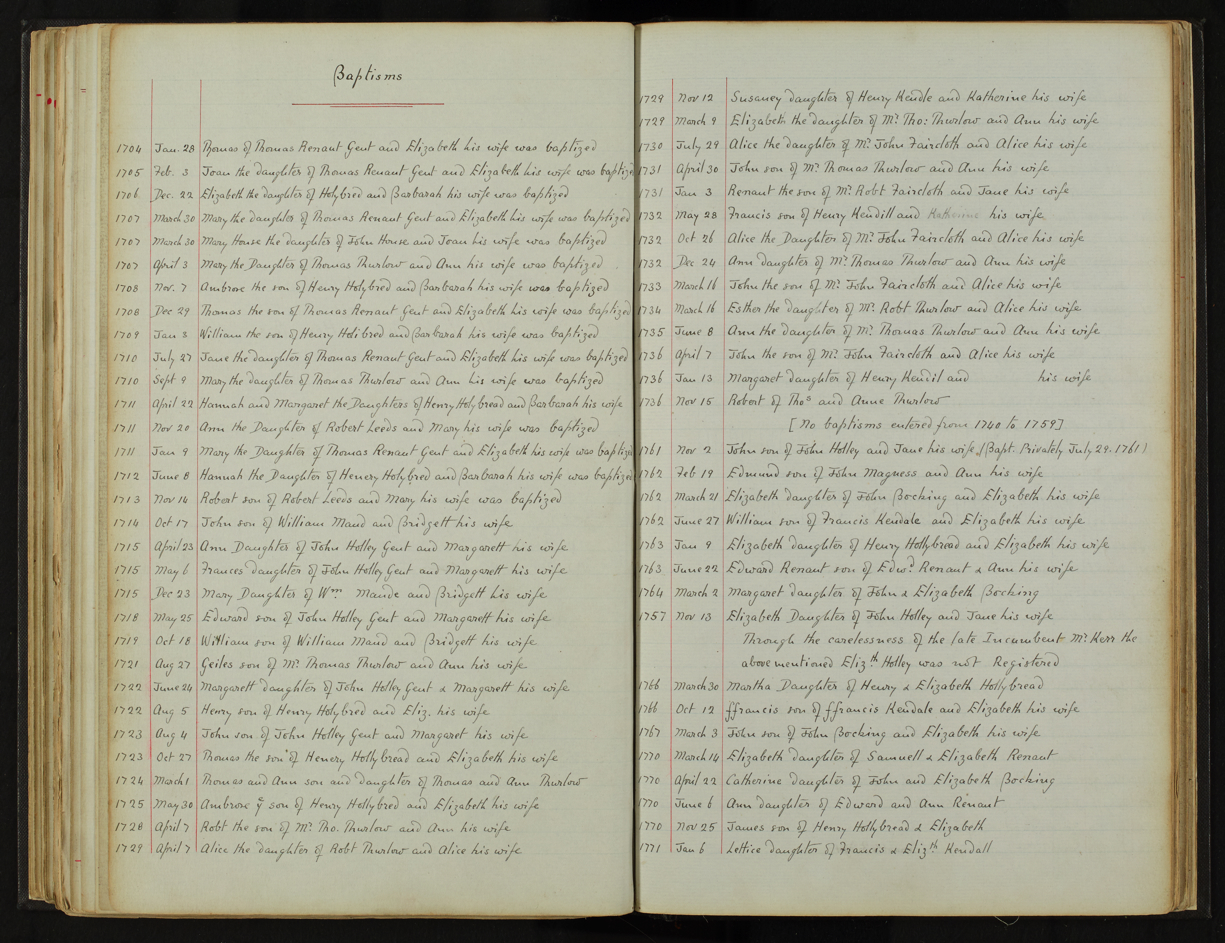 Baptisms
1704 Jan. 28 Thomas of Thomas Renant Gent and Elizabeth his wife was baptized
1705 Feb. 3 Joan the daughter of Thomas Renant Gent and Elizabeth his wife was baptized
1706 Dec. 22 Elizabeth the daughter of Holybred and Barbarah his wife was baptized
1707 March 30 Mary the daughter of Thomas Renant Gent and Elizabeth his wife was baptized
1707 March 30 Mary House the daughter of John House and Joan his wife was baptized
1707 April 3 Mary the Daughter of Thomas Thurlow and Ann his wife was baptized
1708 Nov. 7 Ambrore the son of Henry Holybred and Barbarah his wife was baptized
1708 Dec 29 Thomas the son of Thomas Renant Gent and Elizabeth his wife was baptized
1709 Jan 3 William the son of Henry Holibred and Barbarah his wife was baptized
1710 July 27 Jane the daughter of Thomas Renant Gent and Elizabeth his wife was baptized
1710 Sept 9 Mary the daughter of Thomas Thurlow and Ann his wife was baptized
1711 April 22 Hannah and Margaret the Daughters of Henry Holybread and Barbarah his wife
1711 Nov 20 Ann the Daughter of Robert Leeds and Mary his wife was baptized
1711 Jan 9 Mary the Daughter of Thomas Renant Gent and Elizabeth his wife was baptized
1712 June 8 Hannah the Daughter of Henery Holybred and Barbarah his wife was baptized
1713 Nov 14 Robert son of Robert Leeds and Mary his wife was baptized
1714 Oct 17 John son of William Maud and Bridgett his wife
1715 April 23 Ann Daughter of John Holley Gent and Margarett his wife
1715 May 6 Frances daughter of John Holley Gent and Margarett his wife
1715 Dec 23 Mary Daughter of Wm Maude and Bridgett his wife
1718 May 25 Edward son of John Holley Gent and Margarett his wife
1719 Oct 18 William son of William Maud and Bridgett his wife
1721 Aug 27 Geiles son of Mr. Thomas Thurlow and Ann his wife
1722 June 24 Margarett daughter of John Holley Gent & Margarett his wife
1722 Aug 5 Henry son of Henry Holybred and Eliz. his wife
1723 Aug 4 John son of John Holley Gent and Margaret his wife
1723 Oct 27 Thomas the son of Henery Hollybread and Elizabeth his wife
1724 March 1 Thomas and Ann son and daughter of Thomas and Ann Thurlow
1725 May 30 Ambrose ye son of Henry Hollybred and Elizabeth his wife
1728 April 7 Robt the son of Mr. Tho. Thurlow and Ann his wife
1729 April 7 Alice the daughter of Robt Thurlow and Alice his wife
1729 Nov 12 Susaney daughter of Henry Kendle and Katherine his wife
1729 March 9 Elizabeth the daughter of Mr. Tho: Thurlow and Ann his wife
1730 July 29 Alice the daughter of Mr. John Faircloth and Alice his wife
1731 April 30 John son of Mr. Thomas Thurlow and Ann his wife
1731 Jan 3 Renant the son of Mr. Robt Faircloth and Jane his wife
1732 May 28 Francis son of Henry Kendill and Katherine his wife
1732 Oct 26 Alice the Daughter of Mr. John Faircloth and Alice his wife
1732 Dec 24 Ann daughter of Mr. Thomas Thurlow and Ann his wife
1733 March 16 John the son of Mr. John Faircloth and Alice his wife
1734 March 16 Esther the daughter of Mr. Robt Thurlow and Alice his wife
1735 June 8 Ann the daughter of Mr. Thomas Thurlow and Ann his wife
1736 April 7 John the son of Mr. John Faircloth and Alice his wife
1736 Jan 13 Margaret daughter of Henry Kendil and his wife
1736 Nov 15 Robert of Thos and Anne Thurlow
[No baptisms entered from 1740 to 1759]
1761 Nov 2 John son of John Holley and Jane his wife, (Bapt. Privately July 29. 1761)
1762 Feb 19 Edmund son of John Magness and Ann his wife
1762 March 21 Elizabeth daughter of John Bocking and Elizabeth his wife
1762 June 27 William son of Francis Kendale and Elizabeth his wife
1763 Jan 9 Elizabeth daughter of Henry Hollybread and Elizabeth his wife
1763 June 22 Edward Renant son of Edwd. Renant & Ann his wife
1764 March 2 Margaret daughter of John & Elizabeth Bocking
1757 Nov 13 Elizabeth Daughter of John Holley and Jane his wife
Through the carelessness of the late Incumbent Mr. Kerr the
above mentioned Elizth. Holley was not Registered
1766 March 30 Martha Daughter of Henry & Elizabeth Hollybread
1766 Oct 12 ffrancis son of ffrancis Kendale and Elizabeth his wife
1767 March 3 John son of John Bocking and Elizabeth his wife
1770 March 14 Elizabeth daughter of Samuell & Elizabeth Renant
1770 April 22 Catherine daughter of John and Elizabeth Bocking
1770 June 6 Ann daughter of Edward and Ann Renant
1770 Nov 25 James son of Henry Hollybread & Elizabeth
1771 Jan 6 Lettice daughter of Francis & Elizth Kendall